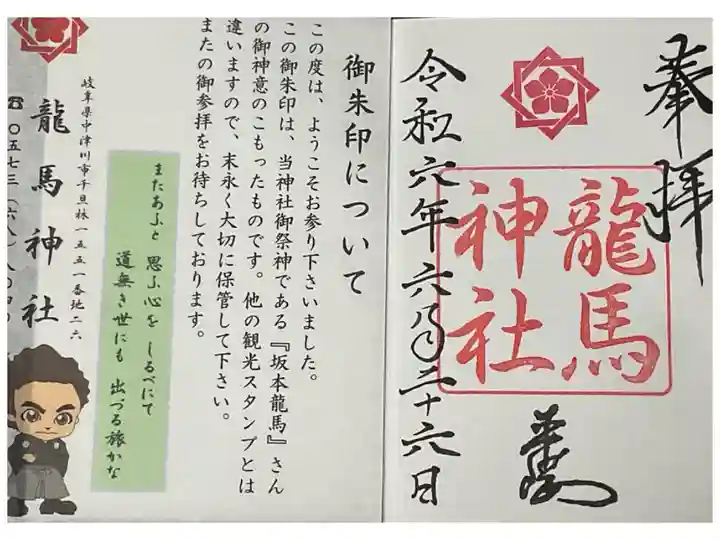 奉拝
龍馬
神社
令和六年六月二十六日
御朱印について
この度は、ようこそお参り下さいました。
この御朱印は、当神社御祭神である『坂本龍馬』さん
の御神意のこもったものです。他の観光スタンプとは
違いますので、末永く大切に保管して下さい。
またの御参拝をお待ちしております。
またあふと 思ふ心を しるべにて
道無き世にも 出づる旅かな
岐阜県中津川市千旦林一五五一番地二六
龍馬神社
☎〇五七三(六八)八〇